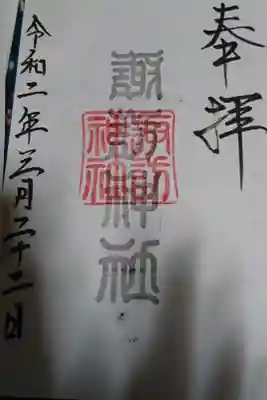 奉拝
諏訪神社
諏訪神社
令和二年三月二十二日